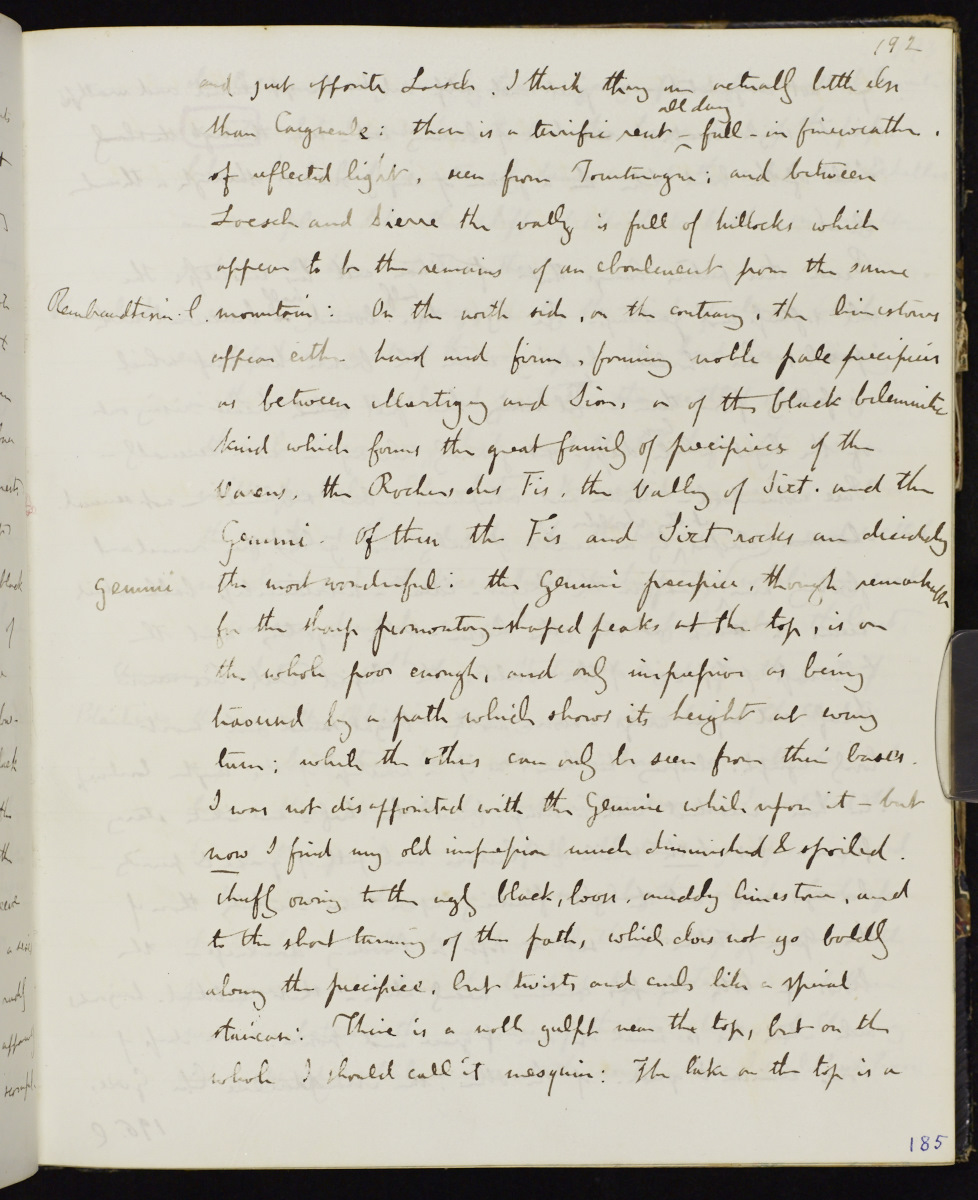 192
and just opposite Loesch. I think they are actually little else
than Cargneule: there is a terrific rent - full - all day in fine weather.
of reflected light, seen from Tourtmagne; and between
Loesch and Sierre the valley is full of hillocks which
appear to be the remains of an eboulement from the same
Rembrandtism. l. mountain: On the north side, on the contrary, the limestones
appear either hard and firm, forming noble pale precipices
as between Martigny and Sion, or of the black belemnitic
kind which forms the great family of precipices of the
Varens, the Rochers des Fis, the Valley of Sixt. and the
Gemmi. Of these the Fis and Sixt rocks are decidedly
Gemmi the most wonderful: the Gemmi precipice, though remarkable
for the sharp promontory-shaped peaks at the top, is on
the whole poor enough, and only impressive as being
traversed by a path which shows its height at every
turn; while the others can only be seen from their bases.
I was not disappointed with the Gemmi while upon it - but
now I find my old impression much diminished & spoiled.
chiefly owing to the ugly black, loose, muddy limestone, and
to the short turning of the path, which does not go boldly
along the precipice, but twists and curls like a spiral
staircase: There is a noble gulph near the top, but on the
whole I should call it mesquin: The lake on the top is a
185